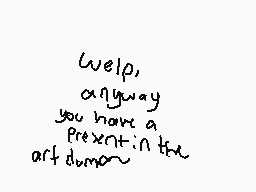 welp,
anyway
you have a
prexent in the
art dump